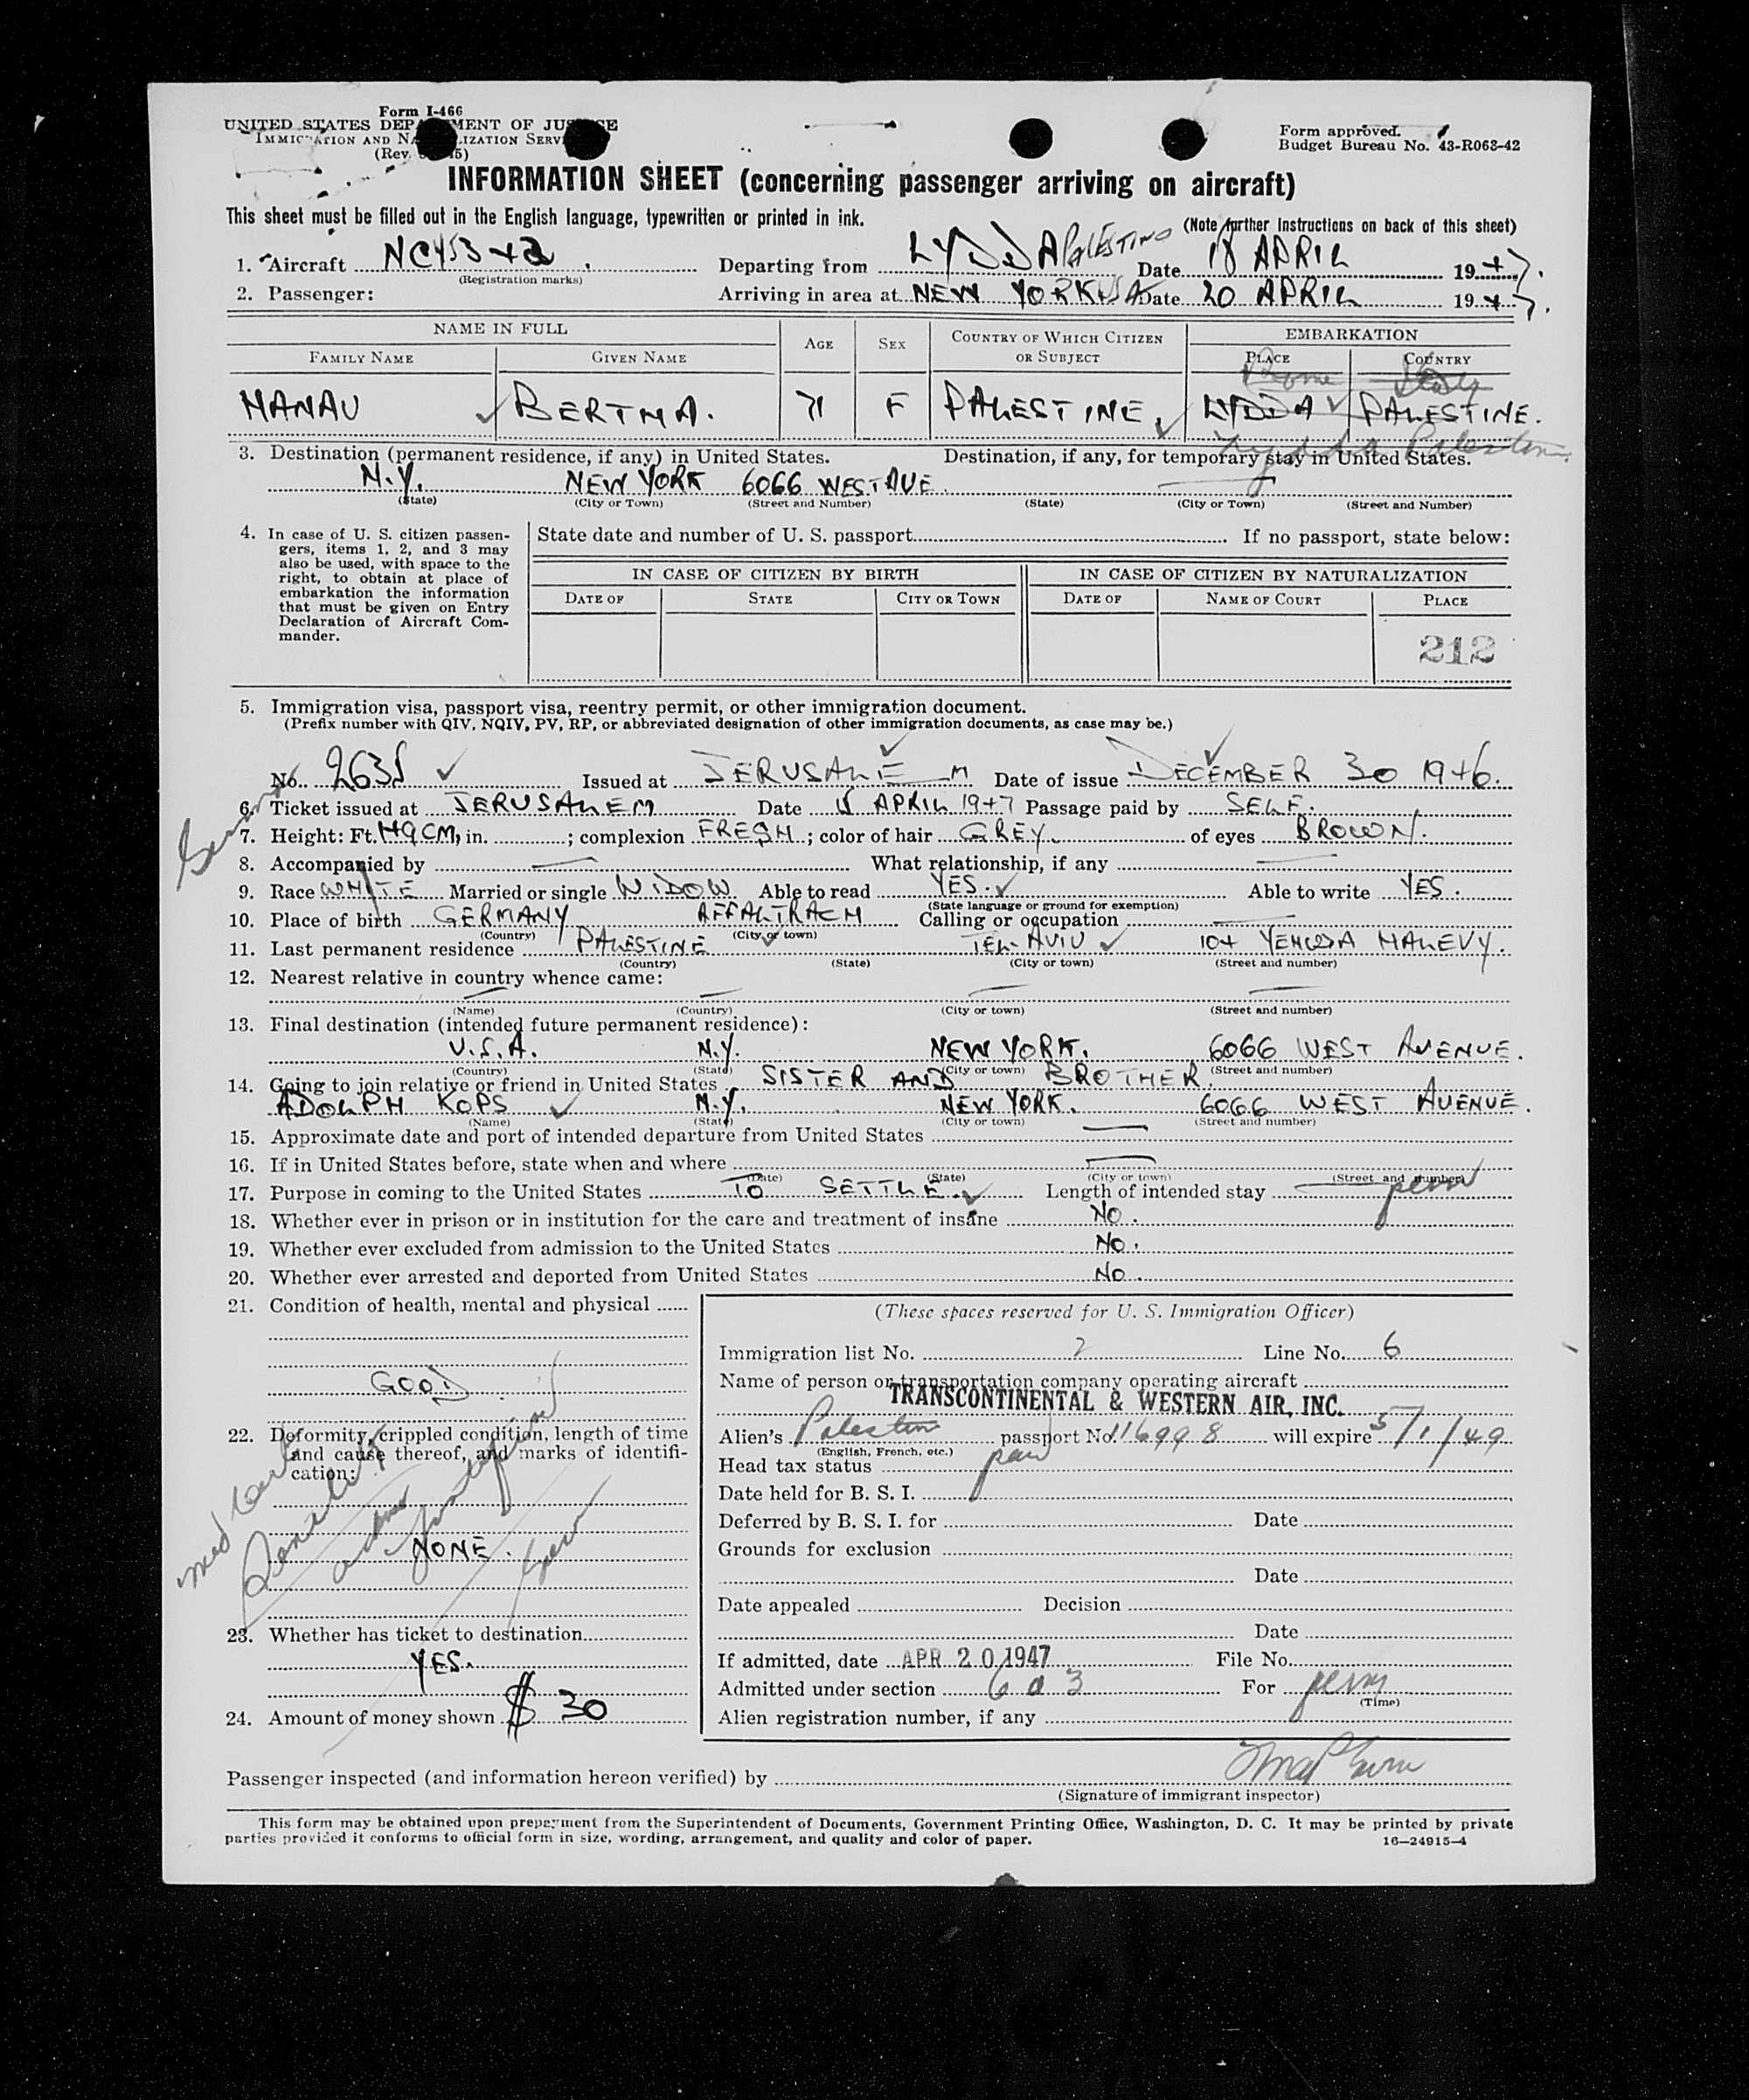 Form I-466
UNITED STATES DEPARTMENT OF JUSTICE
IMMIGRATION AND NATURALIZATION SERVICE
(Rev.
Form approved.
Budget Bureau No. 43-R063-42
INFORMATION SHEET (concerning passenger arriving on aircraft)
This sheet must be filled out in the English language, typewritten or printed in ink.
(Note further Instructions on back of this sheet)
1. Aircraft NC45342 Departing from LYDDA PALESTINE Date 18 APRIL 1947.
(Registration marks)
2. Passenger: Arriving in area at NEW YORK USA Date 20 APRIL 1947.
NAME IN FULL AGE SEX COUNTRY OF WHICH CITIZEN OR SUBJECT EMBARKATION
FAMILY NAME GIVEN NAME PLACE COUNTRY
Rome Italy
HANAU BERTHA. 71 F PALESTINE LYDDA PALESTINE.
Lydda Palestine
3. Destination (permanent residence, if any) in United States. Destination, if any, for temporary stay in United States.
N.Y. NEW YORK 6066 WEST AVE
(State) (City or Town) (Street and Number) (State) (City or Town) (Street and Number)
4. In case of U. S. citizen passen-
gers, items 1, 2, and 3 may
also be used, with space to the
right, to obtain at place of
embarkation the information
that must be given on Entry
Declaration of Aircraft Com-
mander.
State date and number of U. S. passport If no passport, state below:
IN CASE OF CITIZEN BY BIRTH IN CASE OF CITIZEN BY NATURALIZATION
DATE OF STATE CITY OR TOWN DATE OF NAME OF COURT PLACE
212
5. Immigration visa, passport visa, reentry permit, or other immigration document.
(Prefix number with QIV, NQIV, PV, RP, or abbreviated designation of other immigration documents, as case may be.)
No. 2635 Issued at JERUSALEM Date of issue DECEMBER 30 1946.
6. Ticket issued at JERUSALEM Date APRIL 1947 Passage paid by SELF.
7. Height: Ft. 149 CM, in. ; complexion FRESH ; color of hair GREY of eyes BROWN.
8. Accompanied by — What relationship, if any —
9. Race WHITE Married or single WIDOW Able to read YES. Able to write YES.
(State language or ground for exemption)
10. Place of birth GERMANY AFFALTRACH Calling or occupation —
(Country) (City or town)
11. Last permanent residence PALESTINE TEL-AVIV 104 YEHUDA HALEVY.
(Country) (State) (City or town) (Street and number)
12. Nearest relative in country whence came:
— — — —
(Name) (Country) (City or town) (Street and number)
13. Final destination (intended future permanent residence):
U.S.A. N.Y. NEW YORK. 6066 WEST AVENUE.
(Country) (State) (City or town) (Street and number)
14. Going to join relative or friend in United States SISTER AND BROTHER.
ADOLPH KOPS N.Y. NEW YORK. 6066 WEST AVENUE.
(Name) (State) (City or town) (Street and number)
15. Approximate date and port of intended departure from United States —
16. If in United States before, state when and where —
(Date) (State) (City or town) (Street and number)
17. Purpose in coming to the United States TO SETTLE. Length of intended stay — perm
18. Whether ever in prison or in institution for the care and treatment of insane NO.
19. Whether ever excluded from admission to the United States NO.
20. Whether ever arrested and deported from United States NO.
21. Condition of health, mental and physical
GOOD
22. Deformity, crippled condition, length of time
and cause thereof, and marks of identifi-
cation:
NONE.
23. Whether has ticket to destination
YES.
24. Amount of money shown $ 30
(These spaces reserved for U. S. Immigration Officer)
Immigration list No. 2 Line No. 6
Name of person or transportation company operating aircraft
TRANSCONTINENTAL & WESTERN AIR, INC.
Alien's Palestine passport No. 116998 will expire 5/1/49
(English, French, etc.)
Head tax status paid
Date held for B. S. I.
Deferred by B. S. I. for Date
Grounds for exclusion
Date
Date appealed Decision
Date
If admitted, date APR 20 1947 File No.
Admitted under section 6 a 3 For perm
(Time)
Alien registration number, if any
Passenger inspected (and information hereon verified) by
(Signature of immigrant inspector)
This form may be obtained upon prepayment from the Superintendent of Documents, Government Printing Office, Washington, D. C. It may be printed by private
parties provided it conforms to official form in size, wording, arrangement, and quality and color of paper. 16—24915-4